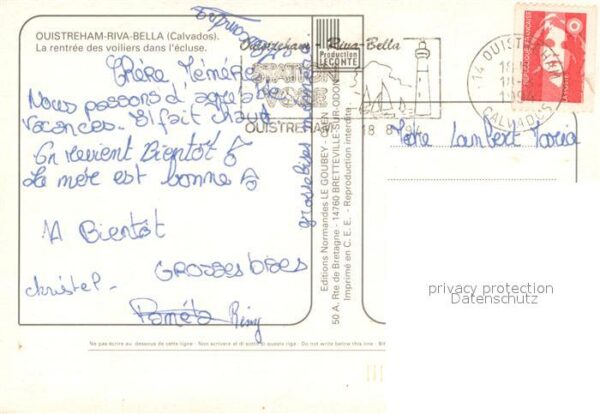 OUISTREHAM-RIVA-BELLA (Calvados).
La rentrée des voiliers dans l'écluse.
Chère Mémère
Nous passons d'agréable
vacances. Il fait chaud
On revient Bientôt
La mer est bonne
A Bientôt
GROSSES BISES
christel
Paméla Rémy
grosse bises
Ouistreham - Riva-Bella
Production
LECONTE
STATION
VOILE
OUISTREHAM
18 8
14 OUISTREHAM
CALVADOS
REPUBLIQUE FRANÇAISE
LA POSTE
Lambert Maria
Editions Normandes LE GOUBEY - CAEN
50 A. Rte de Bretagne - 14760 BRETTEVILLE-SUR-ODON
Imprimé en C. E. E. - Reproduction interdite
Ne pas écrire au dessous de cette ligne - Non scrivere al di sotto di questa riga - Do not write below this line -
privacy protection
Datenschutz